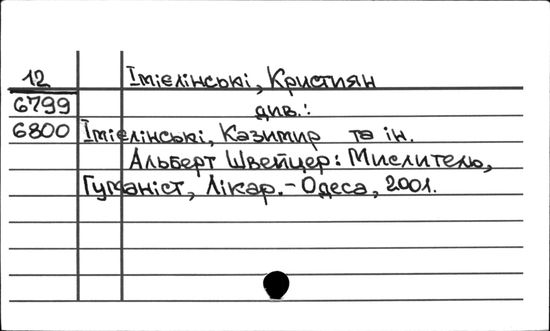 12 Імієлінські, Кристиян
6799 див.:
6800 Імієлінські, Казимир та ін.
Альберт Швейцер: Мислитель,
Гуманіст, Лікар. - Одеса, 2001.